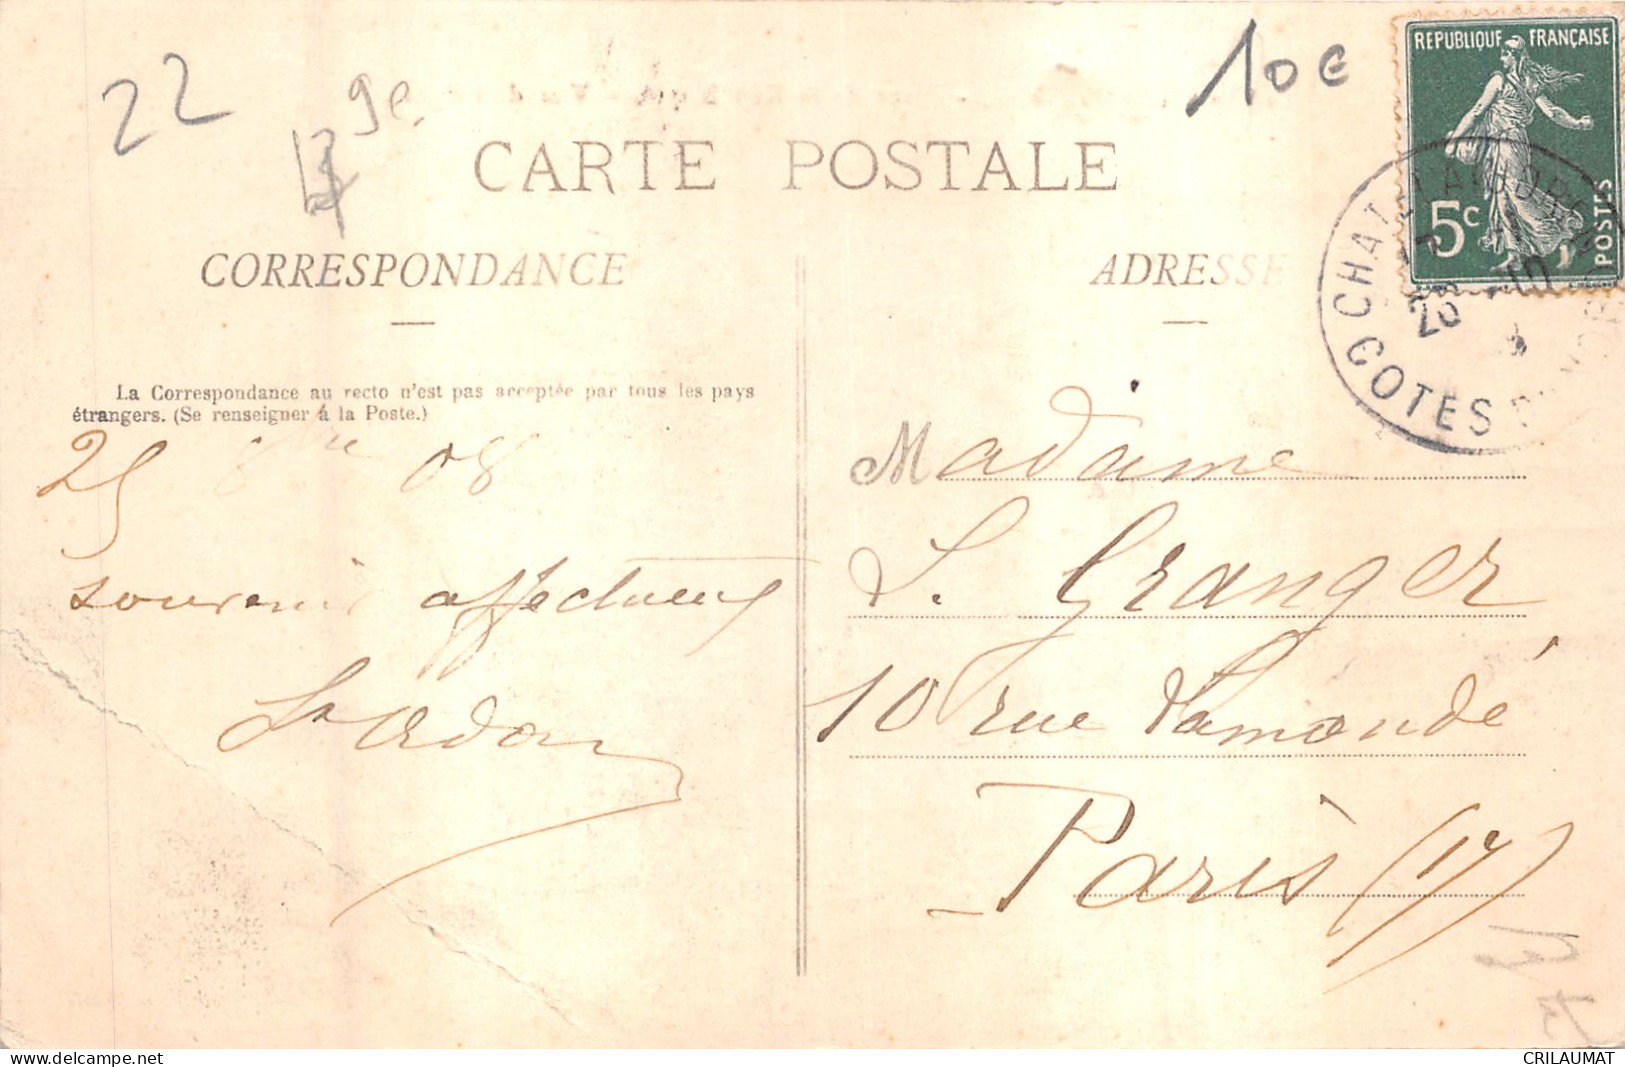 22
9e
10€
REPUBLIQUE FRANÇAISE
5c
POSTES
CARTE POSTALE
CORRESPONDANCE
ADRESSE
CHATELAUDREN
25 -10
COTES DU NORD
La Correspondance au recto n'est pas acceptée par tous les pays
étrangers. (Se renseigner à la Poste.)
25 8bre 08
souvenir affectueux
Madame
S. Granger
10 rue Lamandé
Paris (17)
73
www.delcampe.net
CRILAUMAT